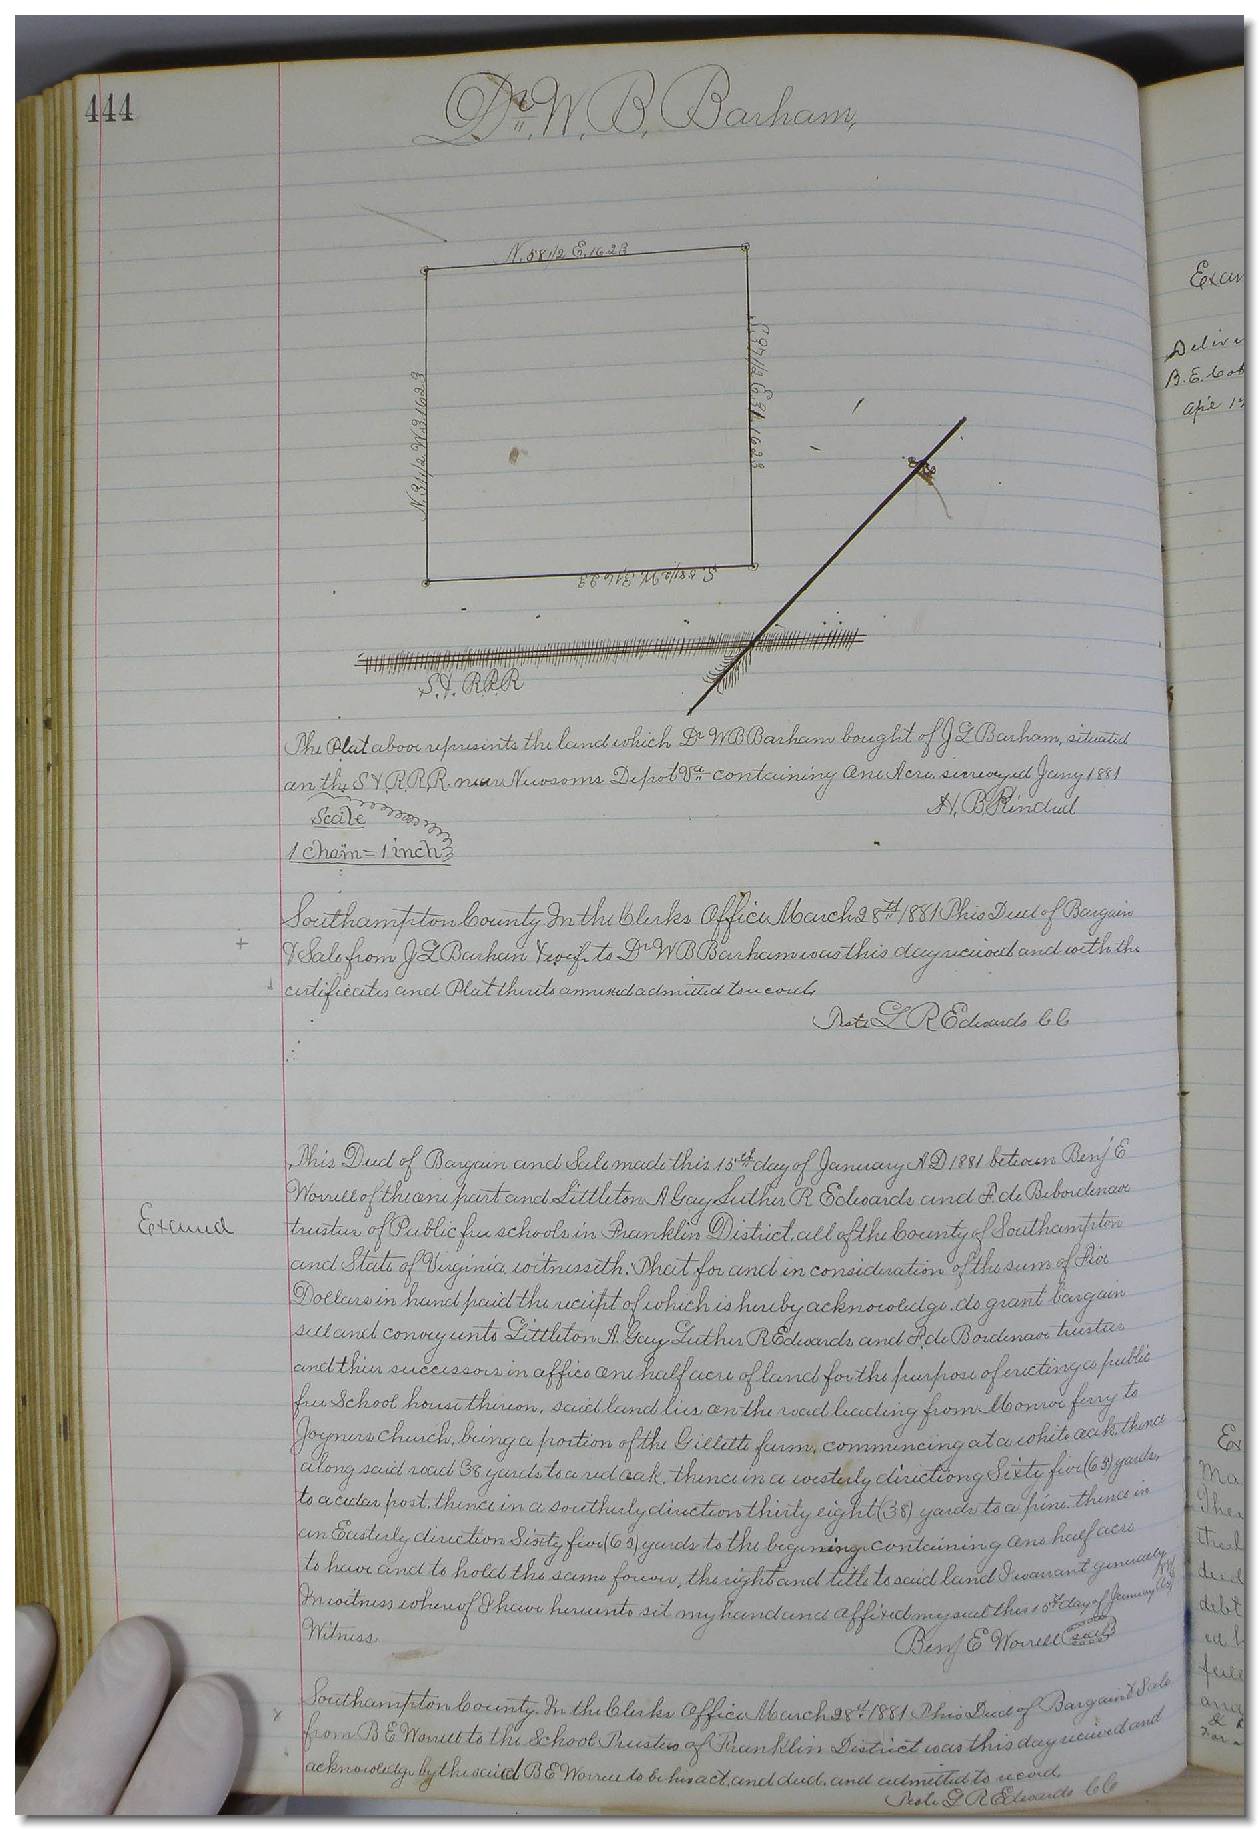 444
Dr. W. B. Barham,
N. 58 1/2 E. 1623
N. 31 1/2 W. 31623
S. 58 1/2 W. 31623
S. & R.R.R
The Plat above represents the land which Dr W B Barham bought of J L Barham, situated
on the S & R.R.R. near Newsoms Depot Va containing One Acre surveyed Jany 1881
H. B. Kindred
Scale
1 Chain = 1 inch
Southampton County In the Clerks Office March 28th 1881 This Deed of Bargain
& Sale from J L Barham & wife to Dr W B Barham was this day received and with the
certificates and Plat thereto annexed admitted to record
Teste L R Edwards CC
This Deed of Bargain and Sale made this 15th day of January A D 1881 between Benj E
Examd
Worrell of the one part and Littleton A Gay Luther R Edwards and P. de Bebordenave
trustees of Public free schools in Franklin District, all of the County of Southampton
and State of Virginia, witnesseth: That for and in consideration of the sum of Five
Dollars in hand paid the receipt of which is hereby acknowledge, do grant bargain
sell and convey unto Littleton A. Gay Luther R Edwards and P. de Bordenave trustees
and thier successors in office one half acre of land for the purpose of erecting a public
free School house thereon, said land lies on the road leading from Monroe ferry to
Joyners church, being a portion of the Gillette farm, commencing at a white oak, thence
along said road 38 yards to a red oak, thence in a westerly directiong Sixty five (65) yards,
to a cedar post, thence in a southerly direction thirty eight (38) yards to a pine, thence in
an Easterly direction Sixty five (65) yards to the begining containing one half acre
to have and to hold the same forever, the right and title to said land I warrant generally
In witness whereof I have hereunto sit my hand and affixed my seal this 15th day of January
Witness. Benj E Worrell seal
Southampton County. In the Clerks Office March 28th 1881 This Deed of Bargain & Sale
from B E Worrell to the School Trustees of Franklin District was this day received and
acknowledge by the said B E Worrell to be his act and deed, and admitted to record
Teste L R Edwards CC
Delive
Ex
Ma
debt